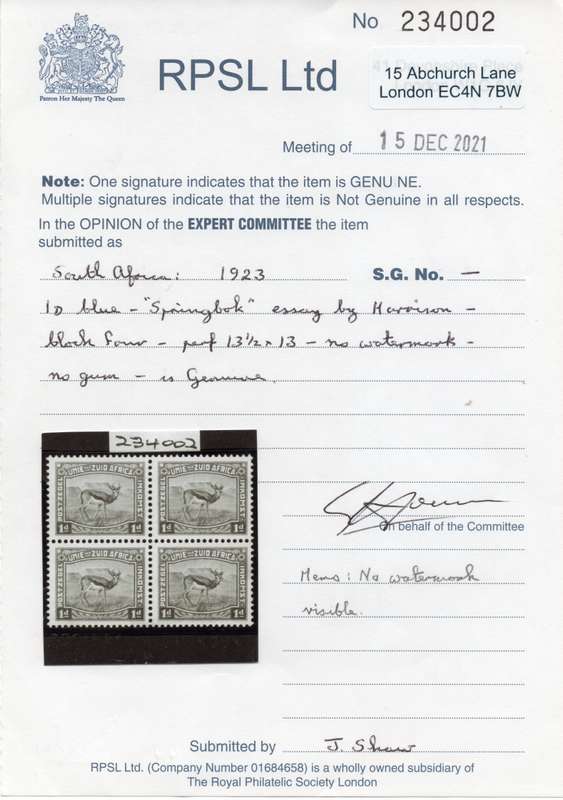 No 234002
Patron Her Majesty The Queen
RPSL Ltd
15 Abchurch Lane
London EC4N 7BW
Meeting of 15 DEC 2021
Note: One signature indicates that the item is GENU NE.
Multiple signatures indicate that the item is Not Genuine in all respects.
In the OPINION of the EXPERT COMMITTEE the item
submitted as
South Africa: 1923 S.G. No. —
1D blue - "Springbok" essay by Harrison -
block four - perf 13½ x 13 - no watermark -
no gum - is Genuine.
234002
POSTZEGEL UNIE VAN ZUID AFRIKA INKOMST
1d 1d
POSTZEGEL UNIE VAN ZUID AFRIKA INKOMST
1d 1d
POSTZEGEL UNIE VAN ZUID AFRIKA INKOMST
1d 1d
POSTZEGEL UNIE VAN ZUID AFRIKA INKOMST
1d 1d
On behalf of the Committee
Memo: No watermark
visible.
Submitted by J. Shaw
RPSL Ltd. (Company Number 01684658) is a wholly owned subsidiary of
The Royal Philatelic Society London